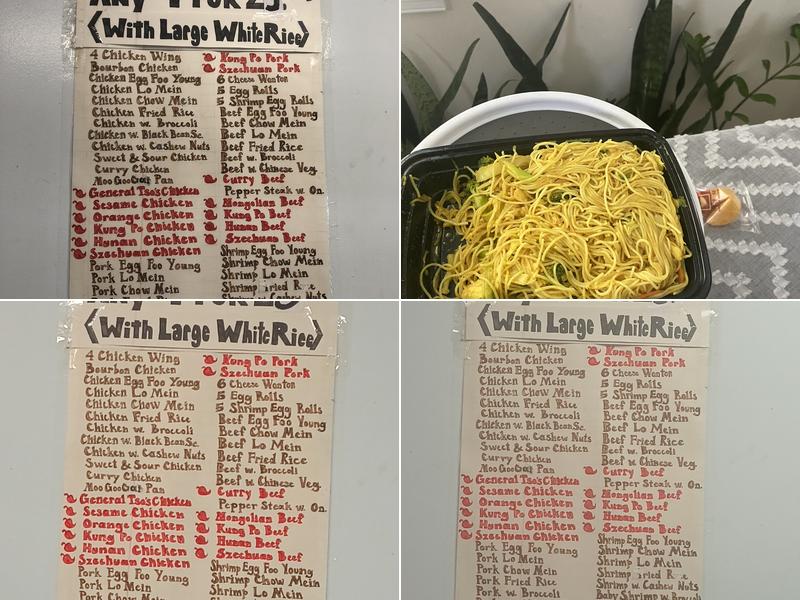 Any 4 FOR 25.
(With Large White Rice)
4 Chicken Wing
Bourbon Chicken
Chicken Egg Foo Young
Chicken Lo Mein
Chicken Chow Mein
Chicken Fried Rice
Chicken w. Broccoli
Chicken w. Black Bean Sc.
Chicken w. Cashew Nuts
Sweet & Sour Chicken
Curry Chicken
Moo Goo Gai Pan
General Tso's Chicken
Sesame Chicken
Orange Chicken
Kung Po Chicken
Hunan Chicken
Szechuan Chicken
Pork Egg Foo Young
Pork Lo Mein
Pork Chow Mein
Kung Po Pork
Szechuan Pork
6 Cheese Wonton
5 Egg Rolls
5 Shrimp Egg Rolls
Beef Egg Foo Young
Beef Chow Mein
Beef Lo Mein
Beef Fried Rice
Beef w. Broccoli
Beef w. Chinese Veg.
Curry Beef
Pepper Steak w. On.
Mongolian Beef
Kung Po Beef
Hunan Beef
Szechuan Beef
Shrimp Egg Foo Young
Shrimp Chow Mein
Shrimp Lo Mein
Shrimp Fried Rice
w. Cashew Nuts
(With Large White Rice)
4 Chicken Wing
Bourbon Chicken
Chicken Egg Foo Young
Chicken Lo Mein
Chicken Chow Mein
Chicken Fried Rice
Chicken w. Broccoli
Chicken w. Black Bean Sc.
Chicken w. Cashew Nuts
Sweet & Sour Chicken
Curry Chicken
Moo Goo Gai Pan
General Tso's Chicken
Sesame Chicken
Orange Chicken
Kung Po Chicken
Hunan Chicken
Szechuan Chicken
Pork Egg Foo Young
Pork Lo Mein
Pork Chow Mein
Kung Po Pork
Szechuan Pork
6 Cheese Wonton
5 Egg Rolls
5 Shrimp Egg Rolls
Beef Egg Foo Young
Beef Chow Mein
Beef Lo Mein
Beef Fried Rice
Beef w. Broccoli
Beef w. Chinese Veg.
Curry Beef
Pepper Steak w. On.
Mongolian Beef
Kung Po Beef
Hunan Beef
Szechuan Beef
Shrimp Egg Foo Young
Shrimp Chow Mein
Shrimp Lo Mein
(With Large White Rice)
4 Chicken Wing
Bourbon Chicken
Chicken Egg Foo Young
Chicken Lo Mein
Chicken Chow Mein
Chicken Fried Rice
Chicken w. Broccoli
Chicken w. Black Bean Sc.
Chicken w. Cashew Nuts
Sweet & Sour Chicken
Curry Chicken
Moo Goo Gai Pan
General Tso's Chicken
Sesame Chicken
Orange Chicken
Kung Po Chicken
Hunan Chicken
Szechuan Chicken
Pork Egg Foo Young
Pork Lo Mein
Pork Chow Mein
Pork Fried Rice
Pork w. Broccoli
Kung Po Pork
Szechuan Pork
6 Cheese Wonton
5 Egg Rolls
5 Shrimp Egg Rolls
Beef Egg Foo Young
Beef Chow Mein
Beef Lo Mein
Beef Fried Rice
Beef w. Broccoli
Beef w. Chinese Veg.
Curry Beef
Pepper Steak w. On.
Mongolian Beef
Kung Po Beef
Hunan Beef
Szechuan Beef
Shrimp Egg Foo Young
Shrimp Chow Mein
Shrimp Lo Mein
Shrimp
Baby Shrimp w. Broccoli